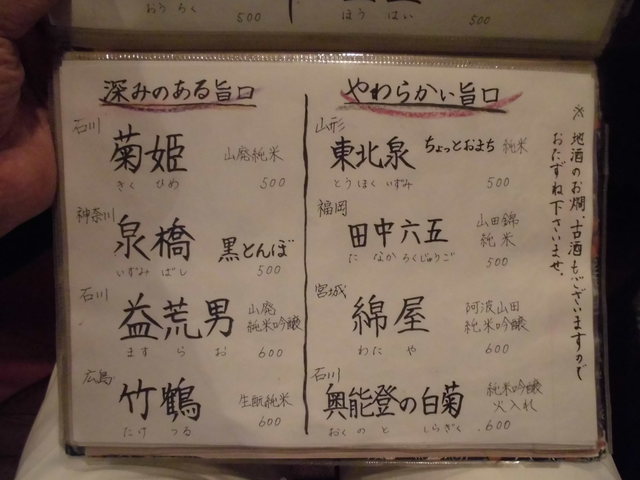 おうらく
500
ほうはい
500
深みのある旨口
石川
菊姫 山廃純米
きくひめ
500
神奈川
泉橋 黒とんぼ
いずみばし
500
石川
益荒男 山廃
純米吟醸
ますらお
600
広島
竹鶴 生酛純米
たけつる
600
やわらかい旨口
山形
東北泉 ちょっとおまち 純米
とうほくいずみ
500
福岡
田中六五 山田錦
純米
たなかろくじゅうご
500
宮城
綿屋 阿波山田
純米吟醸
わたや
600
石川
奥能登の白菊 純米吟醸
火入れ
おくのとしらぎく
600
※地酒のお燗、古酒もございますので
おたずね下さいませ。